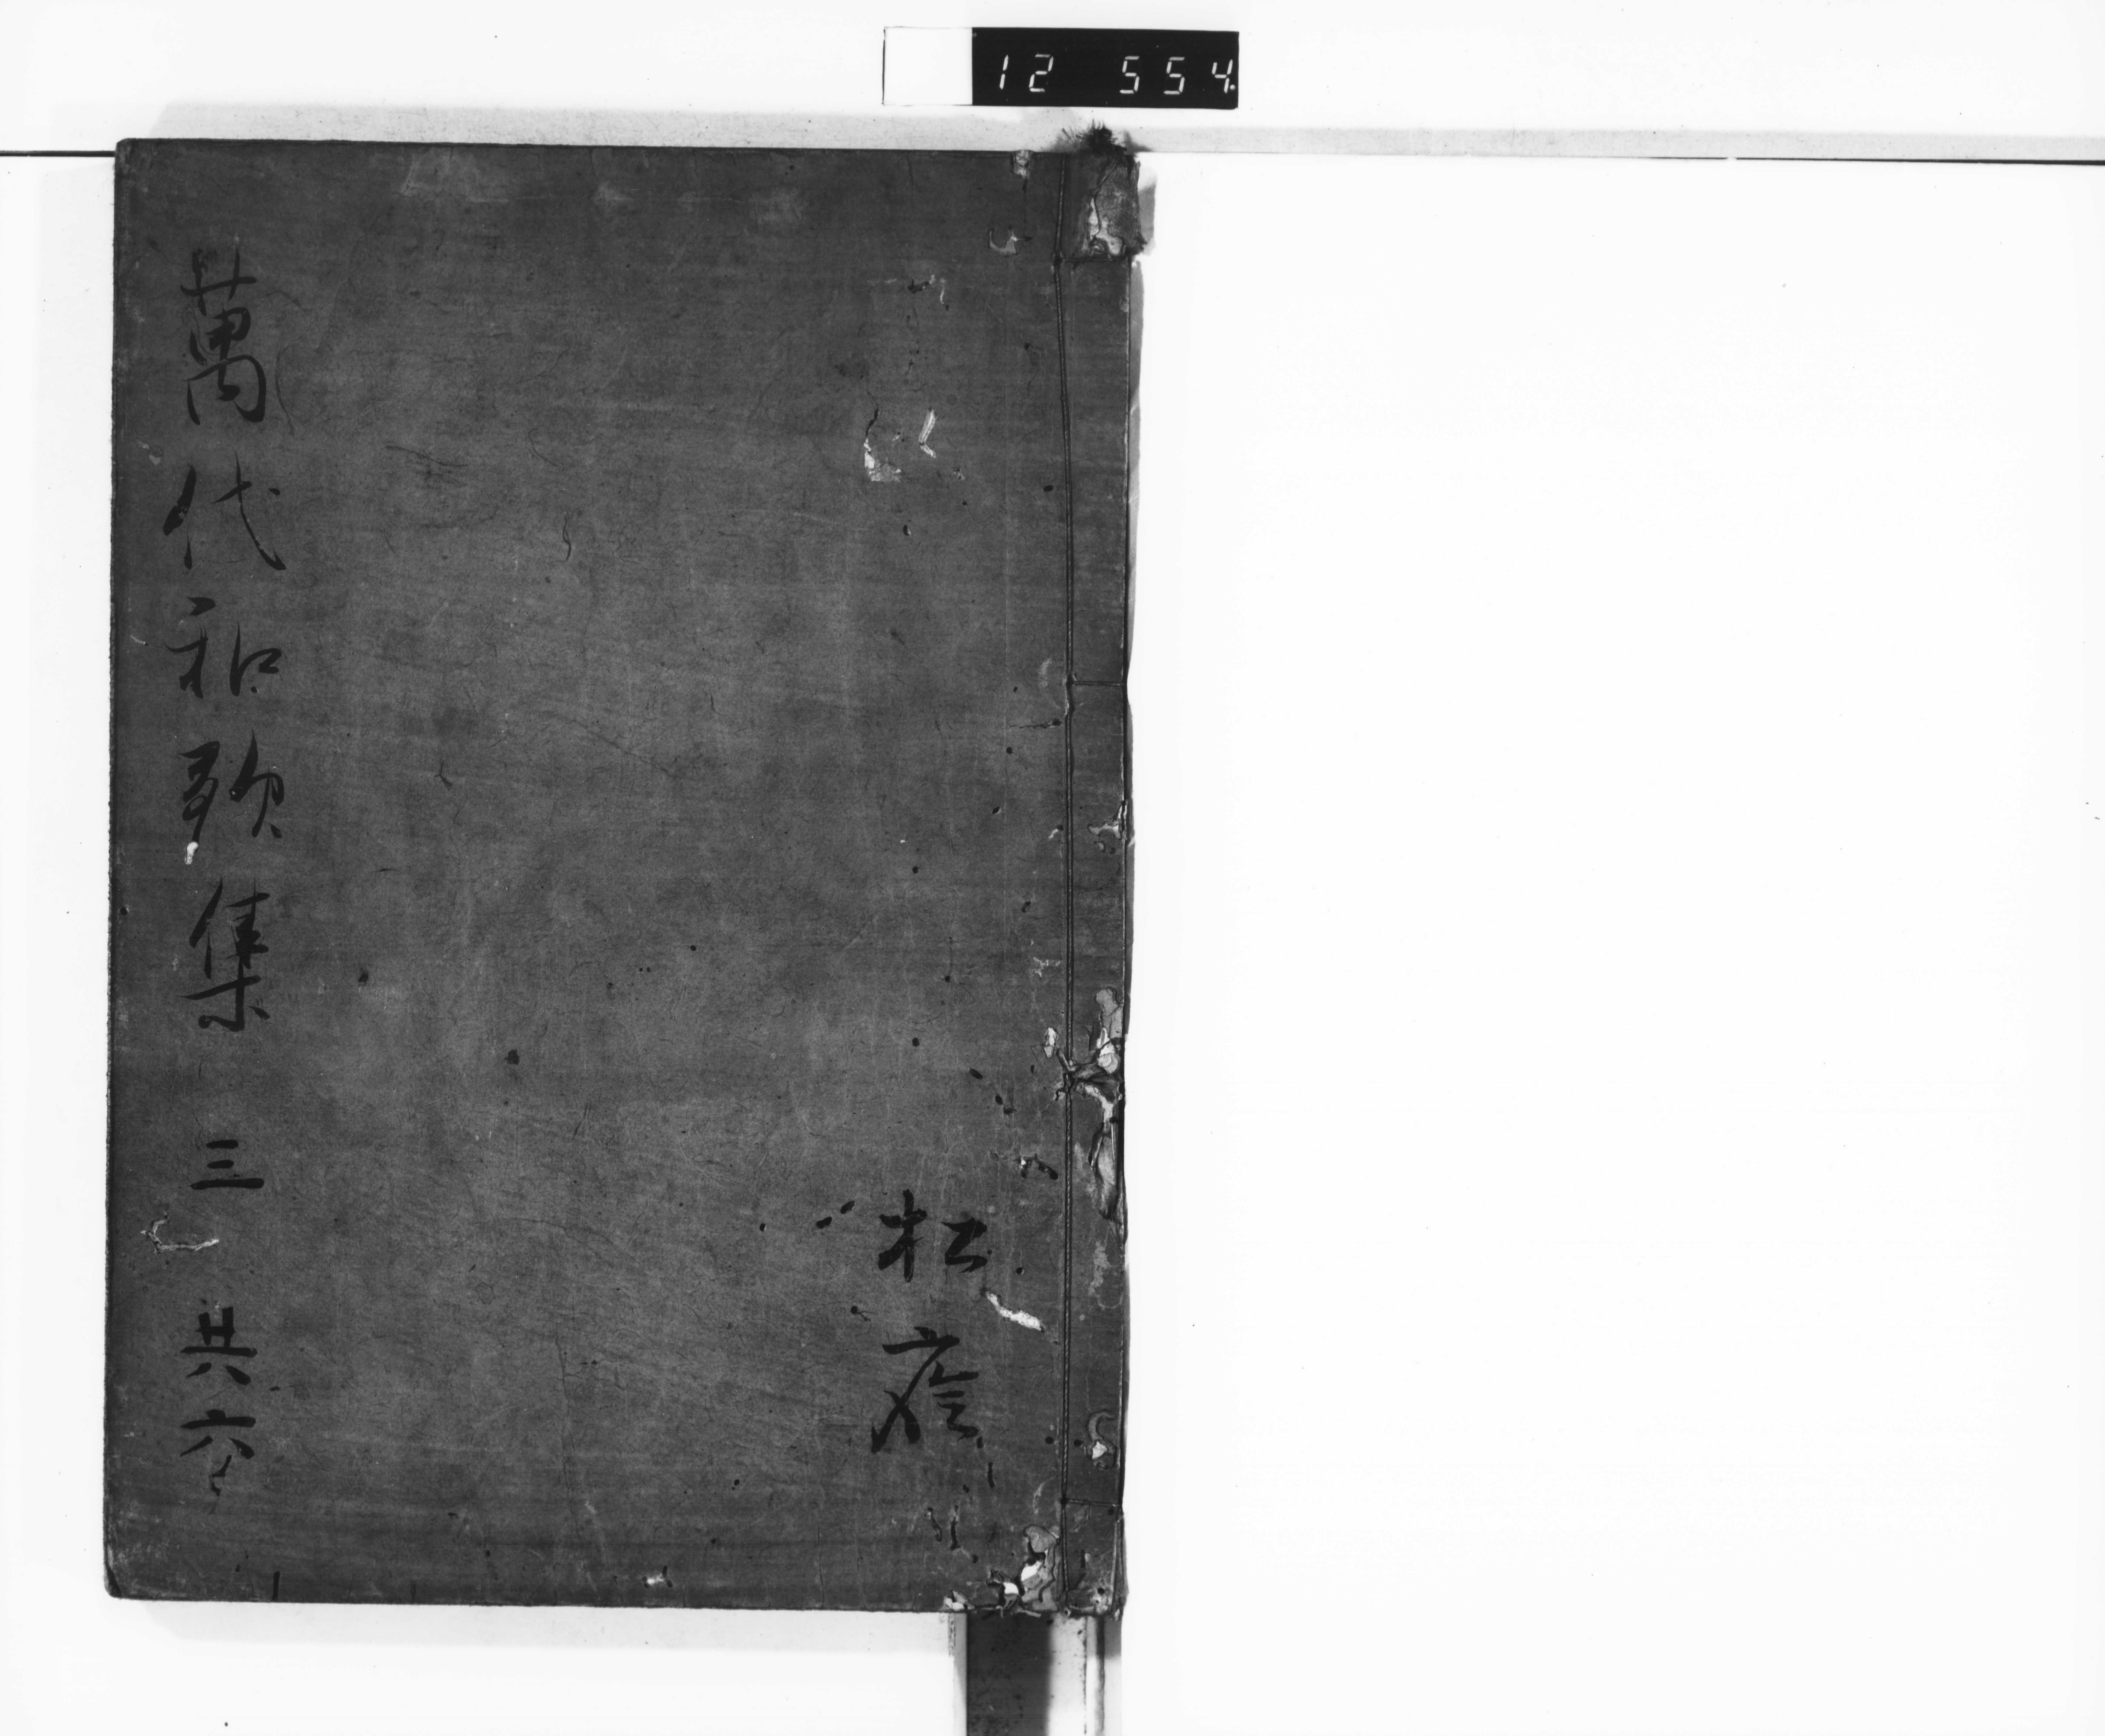 12 554.
松
萬代和歌集 三 共六